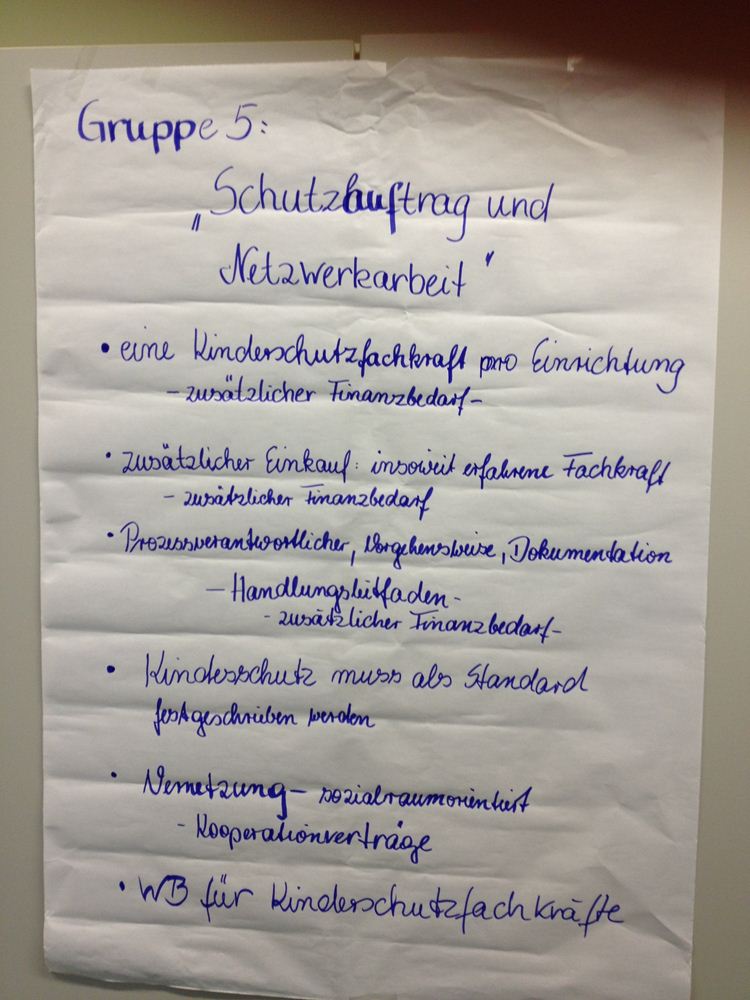 Gruppe 5:
„Schutzauftrag und
Netzwerkarbeit"
• eine Kinderschutzfachkraft pro Einrichtung
- zusätzlicher Finanzbedarf -
• zusätzlicher Einkauf: insoweit erfahrene Fachkraft
- zusätzlicher Finanzbedarf
• Prozessverantwortlicher, Vorgehensweise, Dokumentation
- Handlungsleitfaden -
- zusätzlicher Finanzbedarf -
• Kindesschutz muss als Standard
festgeschrieben werden
• Vernetzung - sozialraumorientiert
- Kooperationverträge
• WB für Kinderschutzfachkräfte